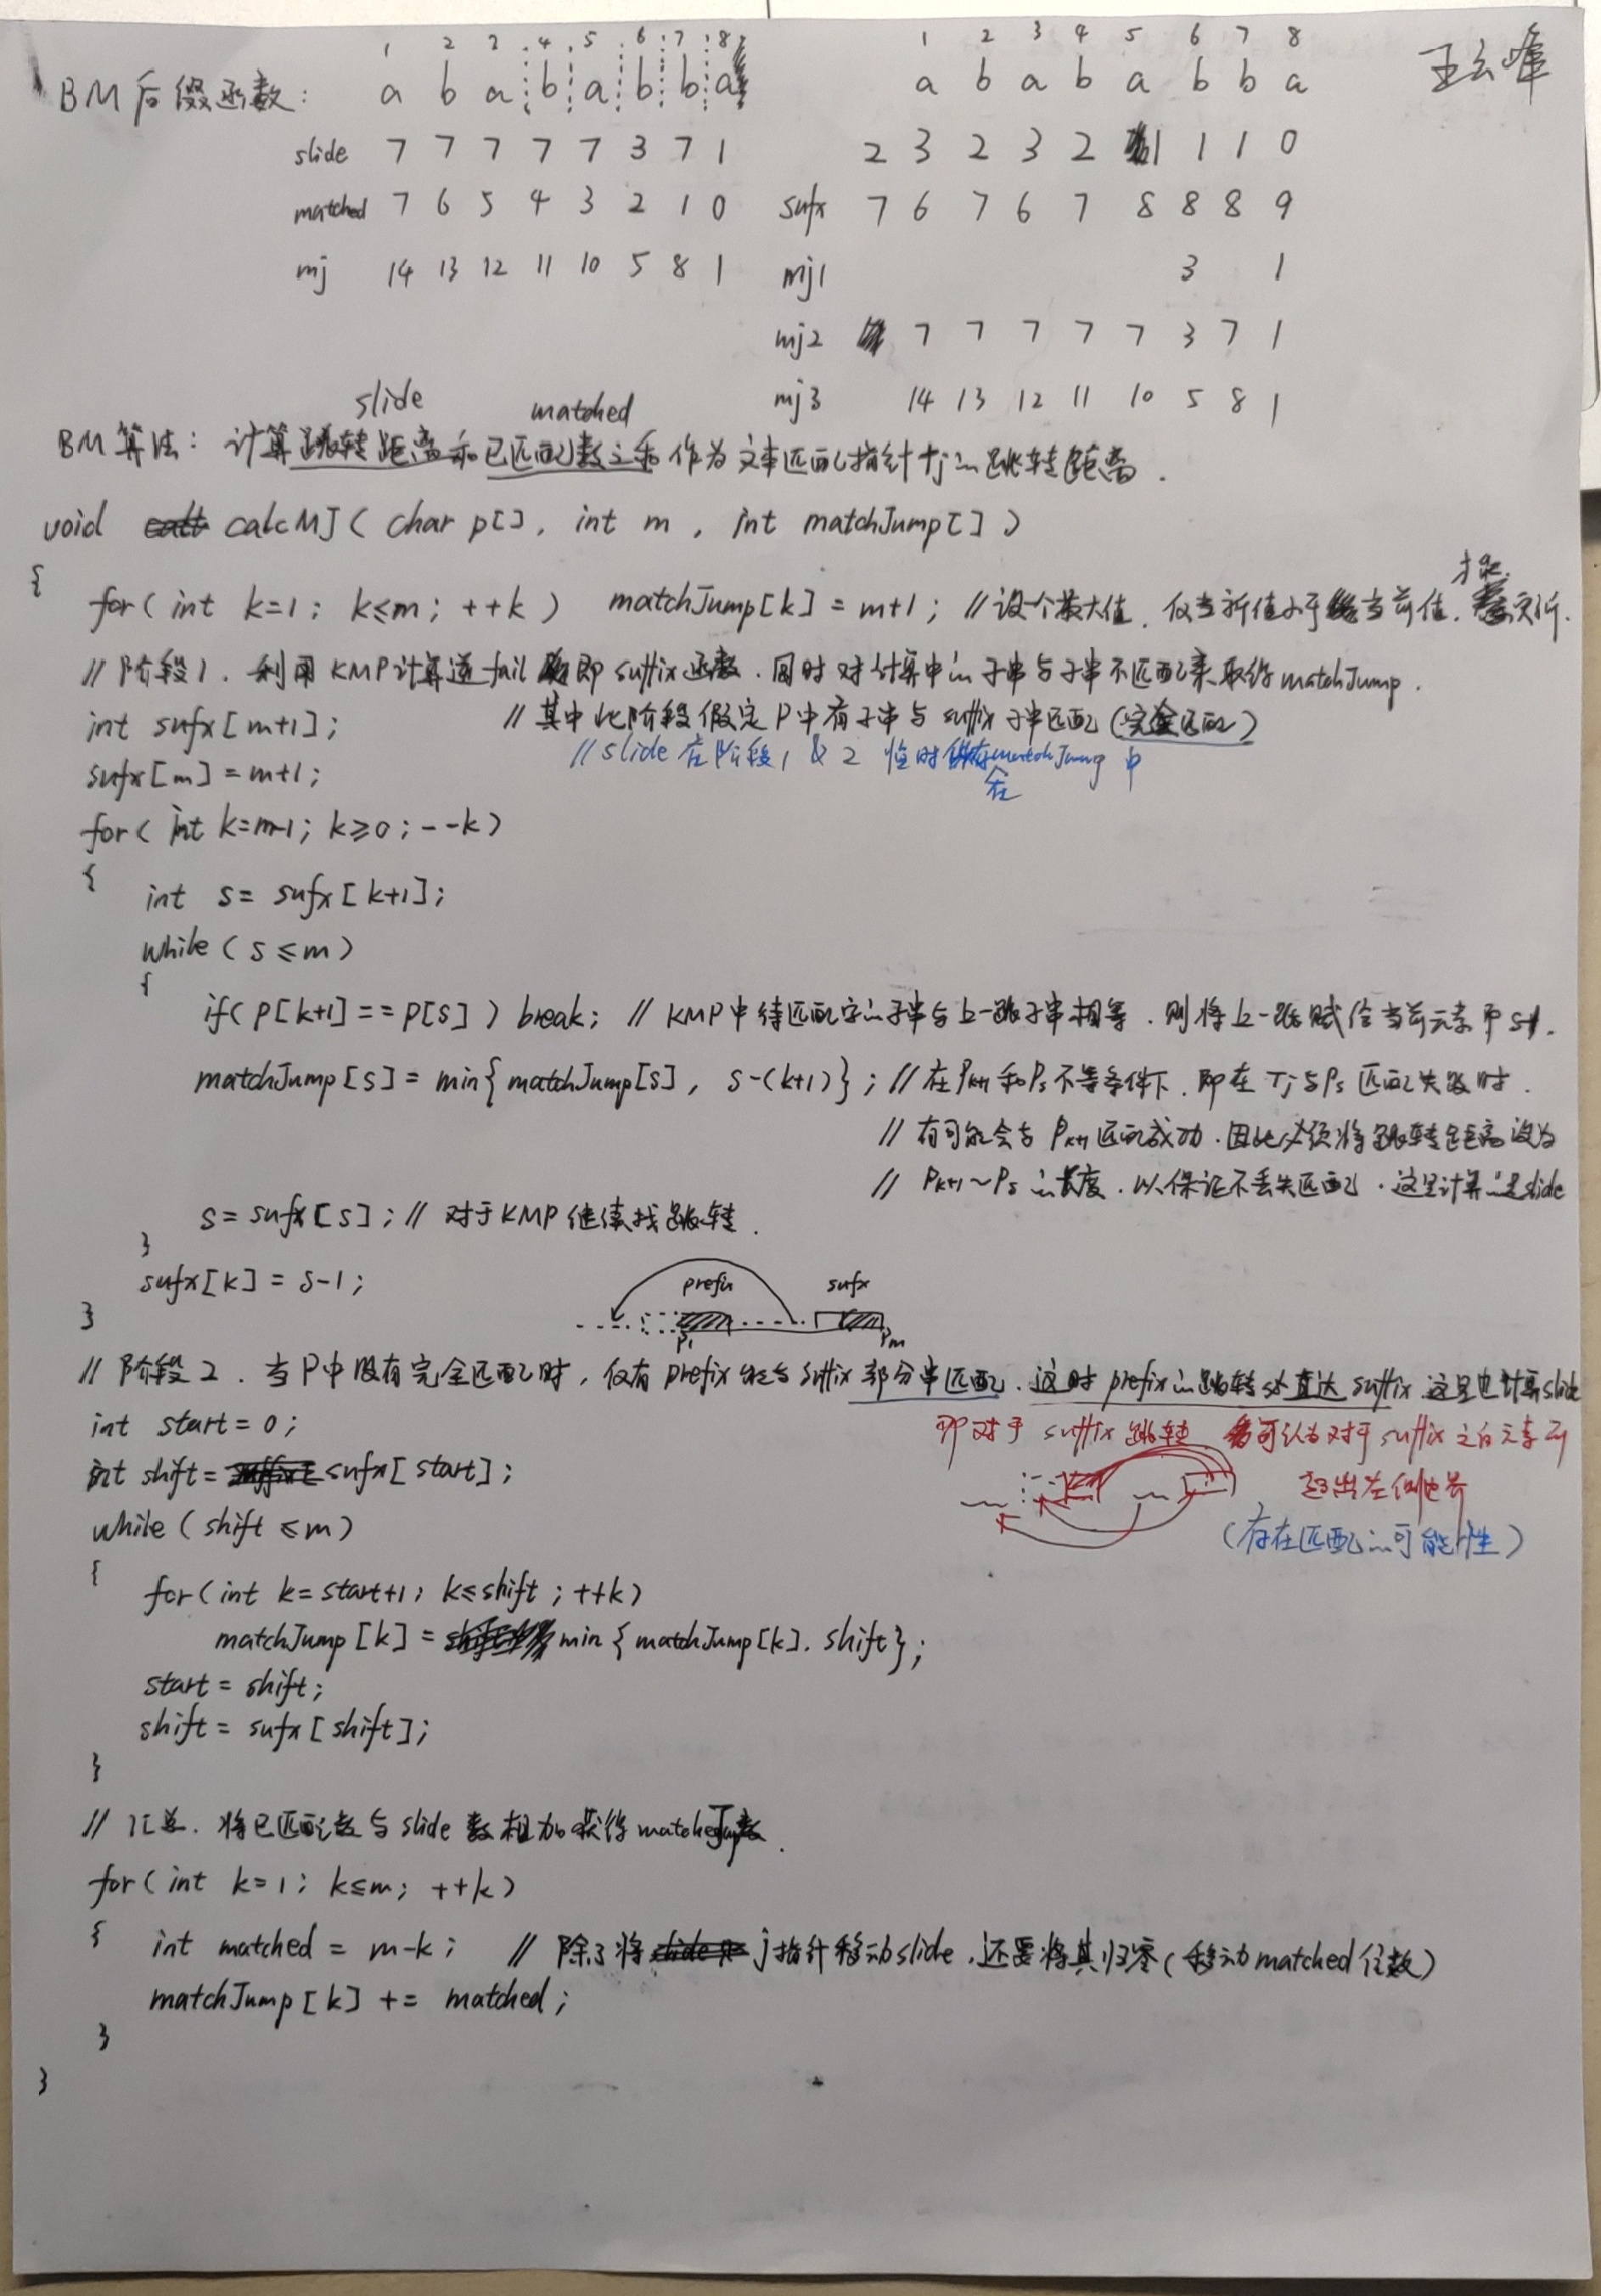 1 2 3 4 5 6 7 8
1 2 3 4 5 6 7 8
BM后缀函数: a b a b a b b a
a b a b a b b a
王云峰
slide 7 7 7 7 7 3 7 1
2 3 2 3 2 1 1 1 0
matched 7 6 5 4 3 2 1 0
sufx 7 6 7 6 7 8 8 8 9
mj 14 13 12 11 10 5 8 1
mj1 3 1
mj2 7 7 7 7 7 3 7 1
mj3 14 13 12 11 10 5 8 1
slide matched
BM算法: 计算跳转距离和已匹配数之和作为文本匹配指针Tj的跳转距离.
void calcMJ( char p[], int m, int matchJump[] )
{
for( int k=1; k≤m; ++k ) matchJump[k] = m+1; //设个最大值, 仅当新值小于当前值, 才能更新.
//阶段1. 利用KMP计算逆fail 即suffix函数. 同时对计算中的子串与子串不匹配来取得matchJump.
int sufx[m+1]; //其中此阶段假定P中有子串与suffix子串匹配(完全匹配)
//slide在阶段1 & 2 临时存在matchJump中
sufx[m] = m+1;
for( int k=m-1; k≥0; --k)
{
int s= sufx[k+1];
while( s≤m )
{
if( p[k+1] == p[s] ) break; // KMP中待匹配字的子串与上一跳子串相等. 则将上一跳赋给当前元素即s-1.
matchJump[s] = min{ matchJump[s], s-(k+1)}; //在Pk+1和Ps不等条件下. 即在Tj与Ps匹配失败时.
//有可能会与Pk+1匹配成功. 因此必须将跳转距离设为
// Pk+1~Ps的长度. 以保证不丢失匹配. 这里计算的是slide
s = sufx[s]; //对于KMP继续找跳转.
}
sufx[k] = s-1;
}
prefix sufx
P1 Pm
//阶段2. 当P中没有完全匹配时, 仅有prefix能与suffix部分串匹配. 这时prefix的跳转 直达suffix 这里也计算slide
int start = 0;
即对于suffix跳转 可认为对于suffix之内元素可
int shift = sufx[start];
超出左侧边界
while( shift ≤m )
(存在匹配的可能性)
{
for( int k=start+1; k≤shift; ++k)
matchJump[k] = min{matchJump[k], shift};
start = shift;
shift = sufx[shift];
}
//汇总. 将已匹配数与slide数相加获得matchJump.
for( int k=1; k≤m; ++k)
{
int matched = m-k; //除了将j指针移动slide. 还要将其归零(移动matched位数)
matchJump[k] += matched;
}
}